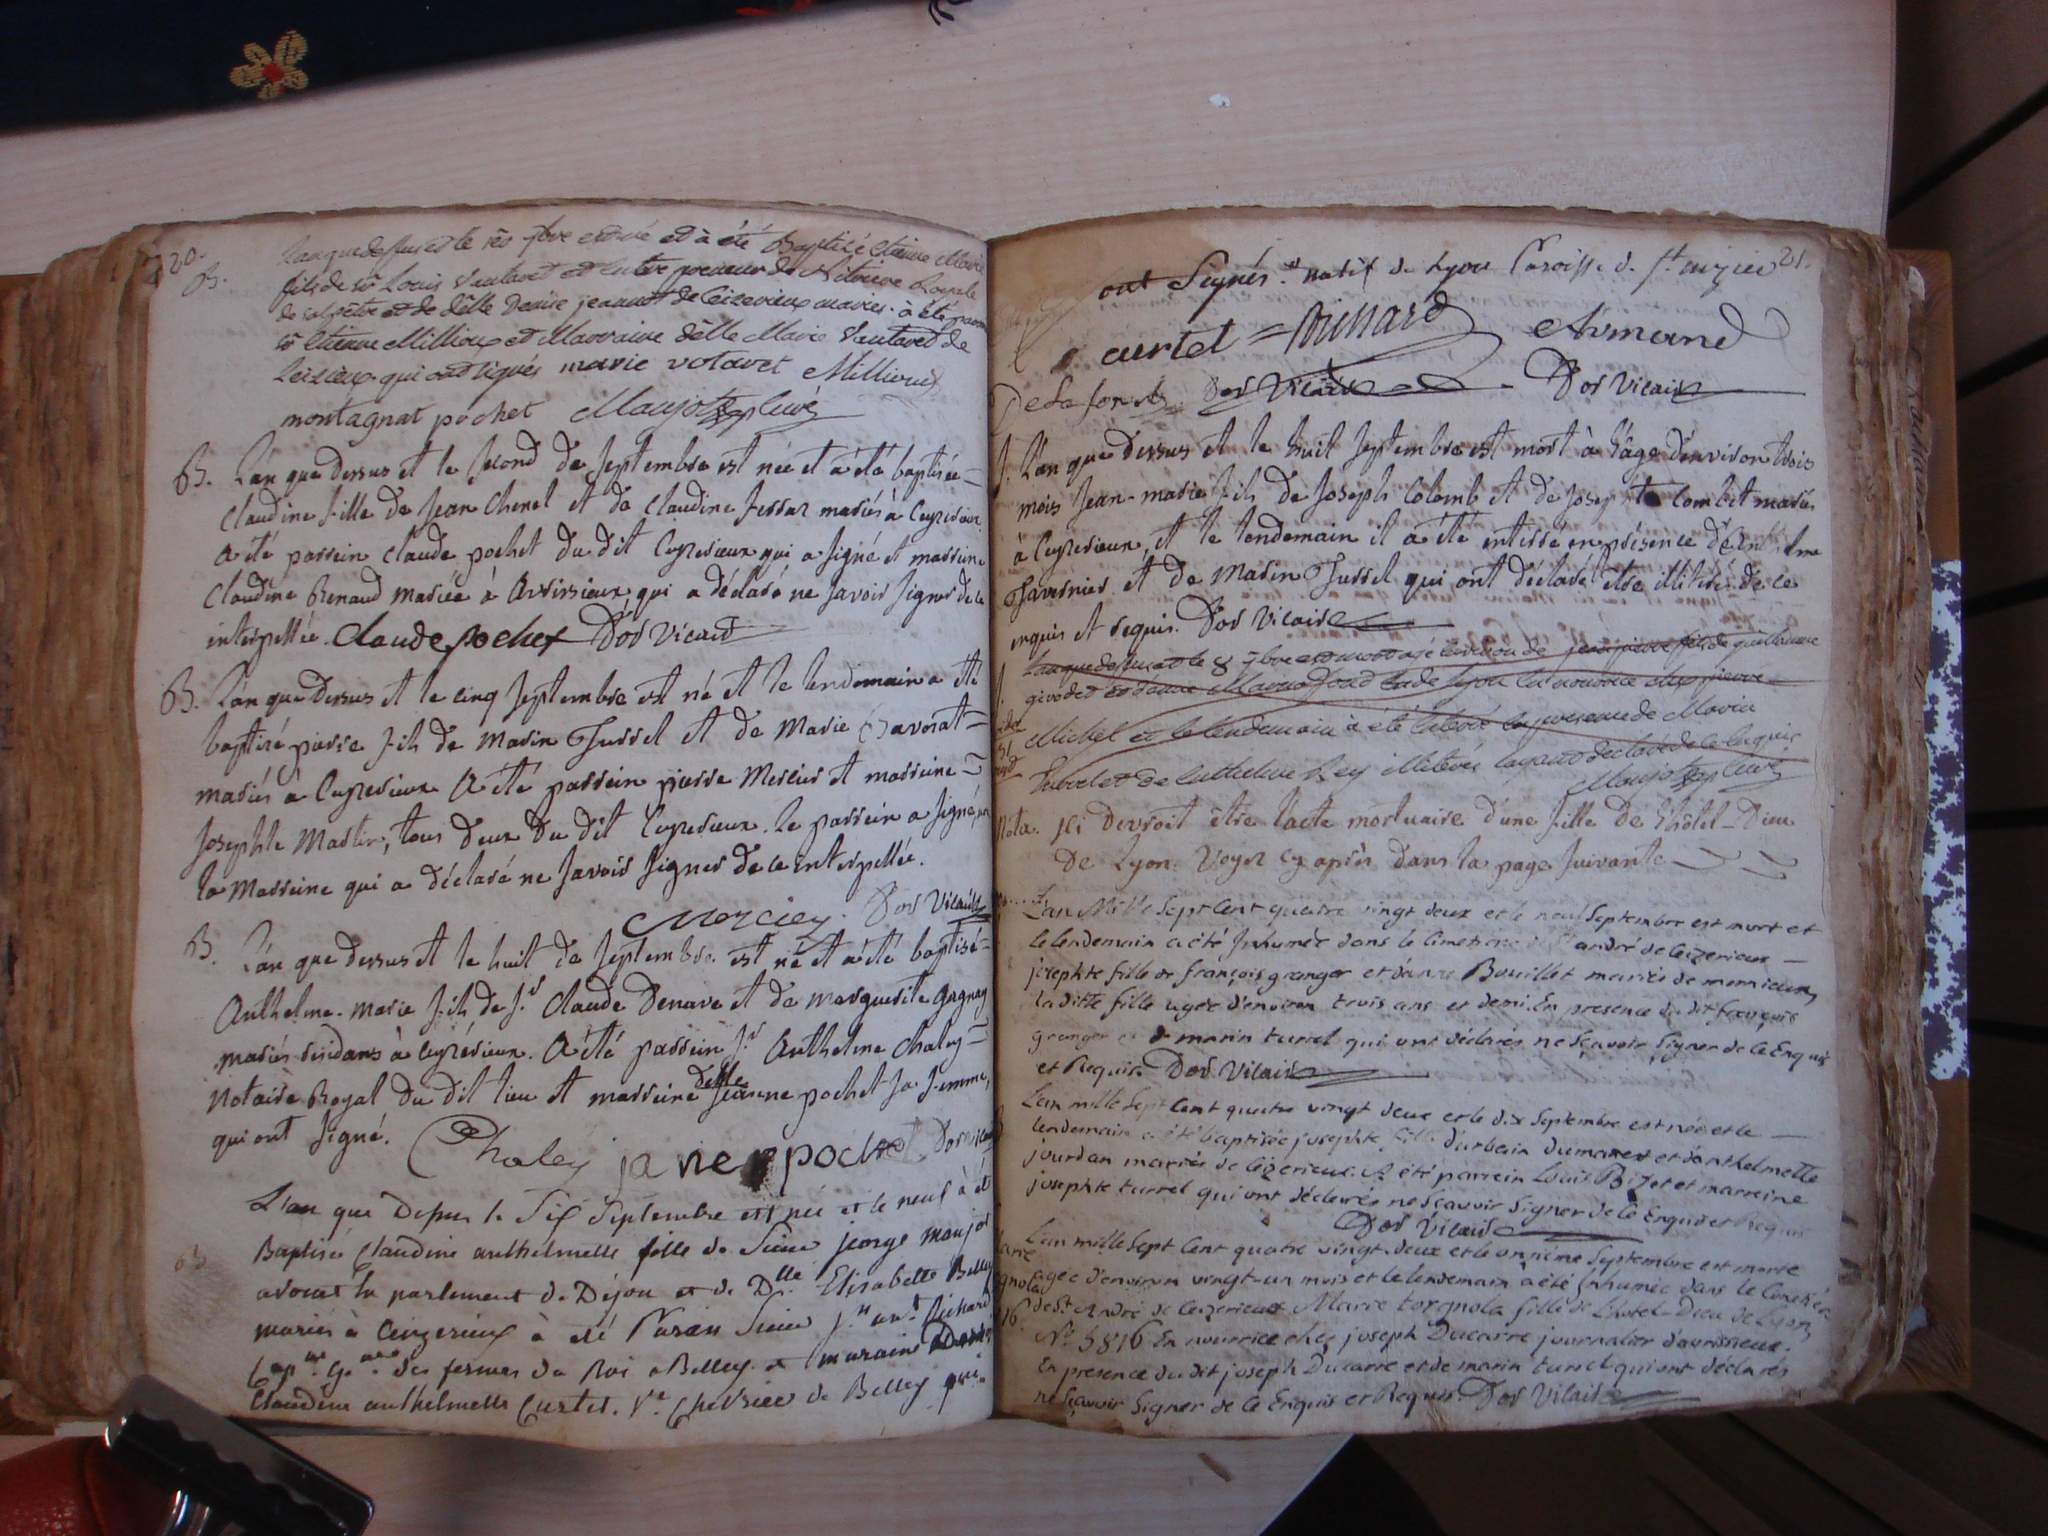 20.
B.
L'an que dessus et le 7bre est né et à été Baptisé Etienne Marie
fils de sr Louis Vautaret et entre preneur de Nitriere Royale
de salpêtre et de délle Denise jeannot de Ceizerieux mariés. à été parrain
sr Etienne Millioux et Marraine délle Marie Vautaret de
Ceizerieux qui ont signés marie votaret Millioux
montagnat pochet Maujot curé
B. L'an que dessus et le second de septembre est née et a été baptisée
Claudine fille de Jean Chenel et de Claudine mariés à Ceyzerieux.
A été parrein Claude pochet du dit Ceyzerieux qui a signé et marreine
Claudine Renaud mariée à Avrissieux qui a déclaré ne savoir signer de ce
interpellée. Claude pochet Dor Vicaire
B. L'an que dessus et le cinq septembre est né et le lendemain a été
baptisé pierre fils de Marin Turrel et de Marie
mariés à Ceyzerieux A été parrein pierre Mercier et marreine
Josephte Martin, tous deux du dit Ceyzerieux. le parrein a signé, non
la Marreine qui a déclaré ne savoir signer de ce interpellée.
Mercier. Dor Vicaire
B. L'an que dessus et le huit de septembre est né et a été baptisé
Anthelme-Marie fils de sr Claude Denave et de Marguerite Gagnay
mariés résidans à Ceyzérieux. A été parrein sr Anthelme Chaley
Notaire Royal du dit lieu et marreine delle Jeanne pochet sa femme,
qui ont signé. Chaley jane pochet Dor Vicaire
B
L'an que Desus le Six Septembre est née et le neuf à été
Baptisée Claudine anthelmette fille de Sieur jeorge maujot
avocat en parlement de Déjon et de Dlle Elisabette Belley
mariés à Ceyzerieux à été Parain Sieur jn ant Richard
Capne gnal des fermes du Roi a Belley et maraine
Claudine anthelmette Curtet. Ve Chevrier de Belley qui
21.
ont Signés. natif de Lyon Paroisse de St nizier
curtet = Richard Armand
De Laforest Dor Vicaire Dor Vicaire
L'an que dessus et le huit septembre est mort à l'âge d'environ trois
mois Jean-marie fils de Joseph Colomb et de Josephte Combet mariés
à Ceyzerieux, et le lendemain il a été enterré en présence d'Anthelme
Tavernier et de Marin Turrel qui ont déclaré être illitérés de ce
enquis et requis. Dor Vicaire
L'an que dessus et le 8 7bre est mort agé environ de jean pierre fils de guillaume
givodet et d'anne de lyon en nourrice chez pierre
Michel et le lendemain à été enterré en presence de Marin
Turrel et de enthelme Rey illiterés layant déclaré de ce enquis
Maujot curé
Nota. ici devroit être l'acte mortuaire d'une fille de l'hôtel-Dieu
De Lyon. Voyez cy après dans la page suivante
L'an Mille Sept Cent quatre vingt deux et le neuf Septembre est mort et
le lendemain a été Inhumée dans le Cimetiere de St andré de Ceizerieux
josephte fille de françois granger et d'anne Bouillet mariés de
laditte fille agée d'environ trois ans et demi. En presence du dit françois
granger et de marin turrel qui ont déclarés ne Sçavoir Signer de Ce Enquis
et Requis. Dor Vicaire
L'an mille Sept Cent quatre vingt deux et le dix Septembre est née et le
lendemain a été baptisée josephte fille d'urbain dumarest et danthelmette
jourdan mariés de Ceizerieux. A été parrein Louis Bizet et marreine
josephte turrel qui ont déclarés ne Sçavoir Signer de Ce Enquis et Requis
Dor Vicaire
L'an mille Sept Cent quatre vingt-deux et le onzième Septembre est morte
agée d'environ vingt-un mois et le lendemain a été Inhumée dans le Cimetière
de St André de Ceizerieux Marie torgnola fille de L'hotel-Dieu de Lyon
No 5816 En nourrice chez joseph Ducarre journalier d'avrissieux.
En presence du dit joseph Ducarre et de marin turrel qui ont déclarés
ne Sçavoir Signer de Ce Enquis et Requis. Dor Vicaire